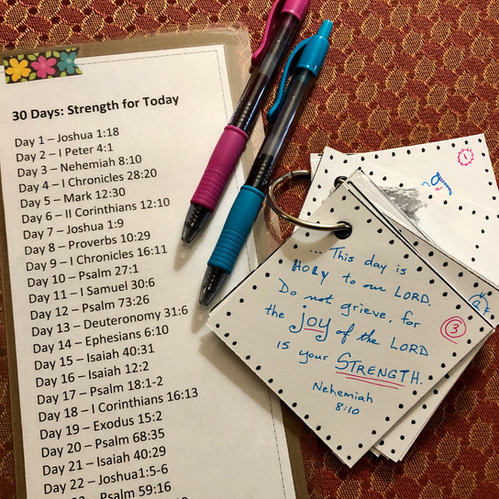 30 Days: Strength for Today
Day 1 – Joshua 1:18
Day 2 – I Peter 4:1
Day 3 – Nehemiah 8:10
Day 4 – I Chronicles 28:20
Day 5 – Mark 12:30
Day 6 – II Corinthians 12:10
Day 7 – Joshua 1:9
Day 8 – Proverbs 10:29
Day 9 – I Chronicles 16:11
Day 10 – Psalm 27:1
Day 11 – I Samuel 30:6
Day 12 – Psalm 73:26
Day 13 – Deuteronomy 31:6
Day 14 – Ephesians 6:10
Day 15 – Isaiah 40:31
Day 16 – Isaiah 12:2
Day 17 – Psalm 18:1-2
Day 18 – I Corinthians 16:13
Day 19 – Exodus 15:2
Day 20 – Psalm 68:35
Day 21 – Isaiah 40:29
Day 22 – Joshua1:5-6
Psalm 59:16
1
... This day is
HOLY to our LORD.
Do not grieve, for
the joy of the LORD
is your STRENGTH.
3
Nehemiah
8:10